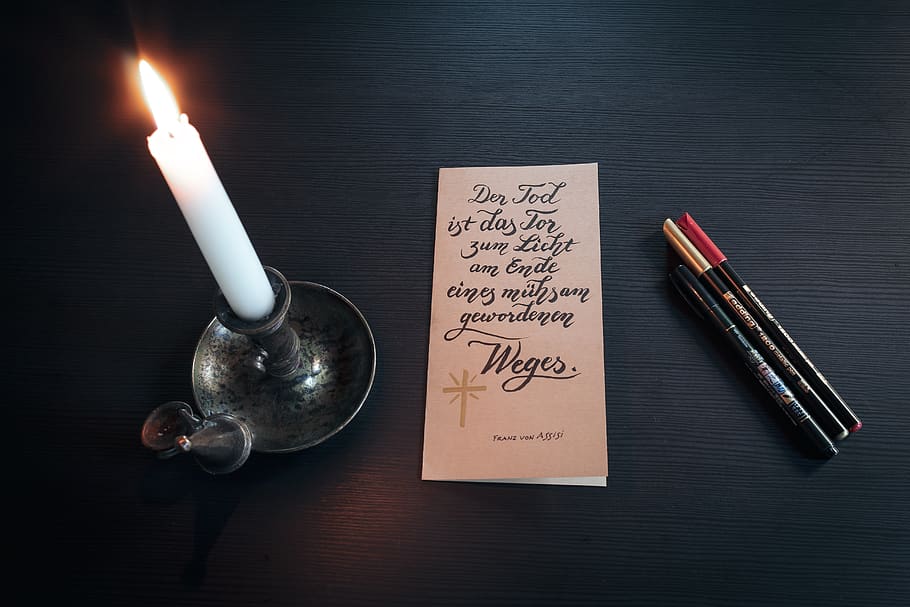 Der Tod
ist das Tor
zum Licht
am Ende
eines mühsam
gewordenen
Weges.
FRANZ VON ASSISI
edding 1800